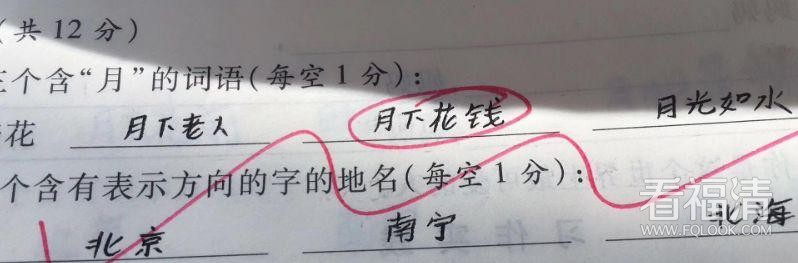 (共12分)
三个含“月”的词语(每空1分):
花 月下老人 月下花钱 月光如水
个含有表示方向的字的地名(每空1分):
北京 南宁 北海
看福清
WWW.FQLOOK.COM